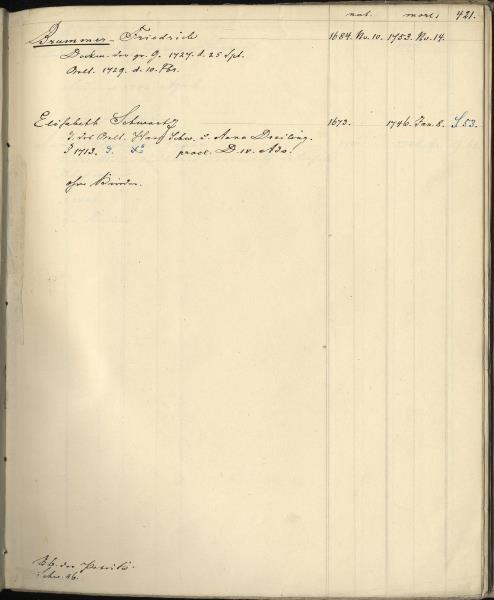 nat. mort. 421.
Brummer Friedrich 1684. No. 10. 1753. No. 14.
Dockm. der gr. G. 1727. d. 25 Spt.
Aelt. 1729. d. 10. Fbr.
Elisabeth Schwartz 1673. 1746. Jan. 8. S 53.
T. des Aelt. Hans Schw. u. Anna Dreiling.
1713. procl. D. 18. Adv.
ohne Kinder.
Schw. 46.